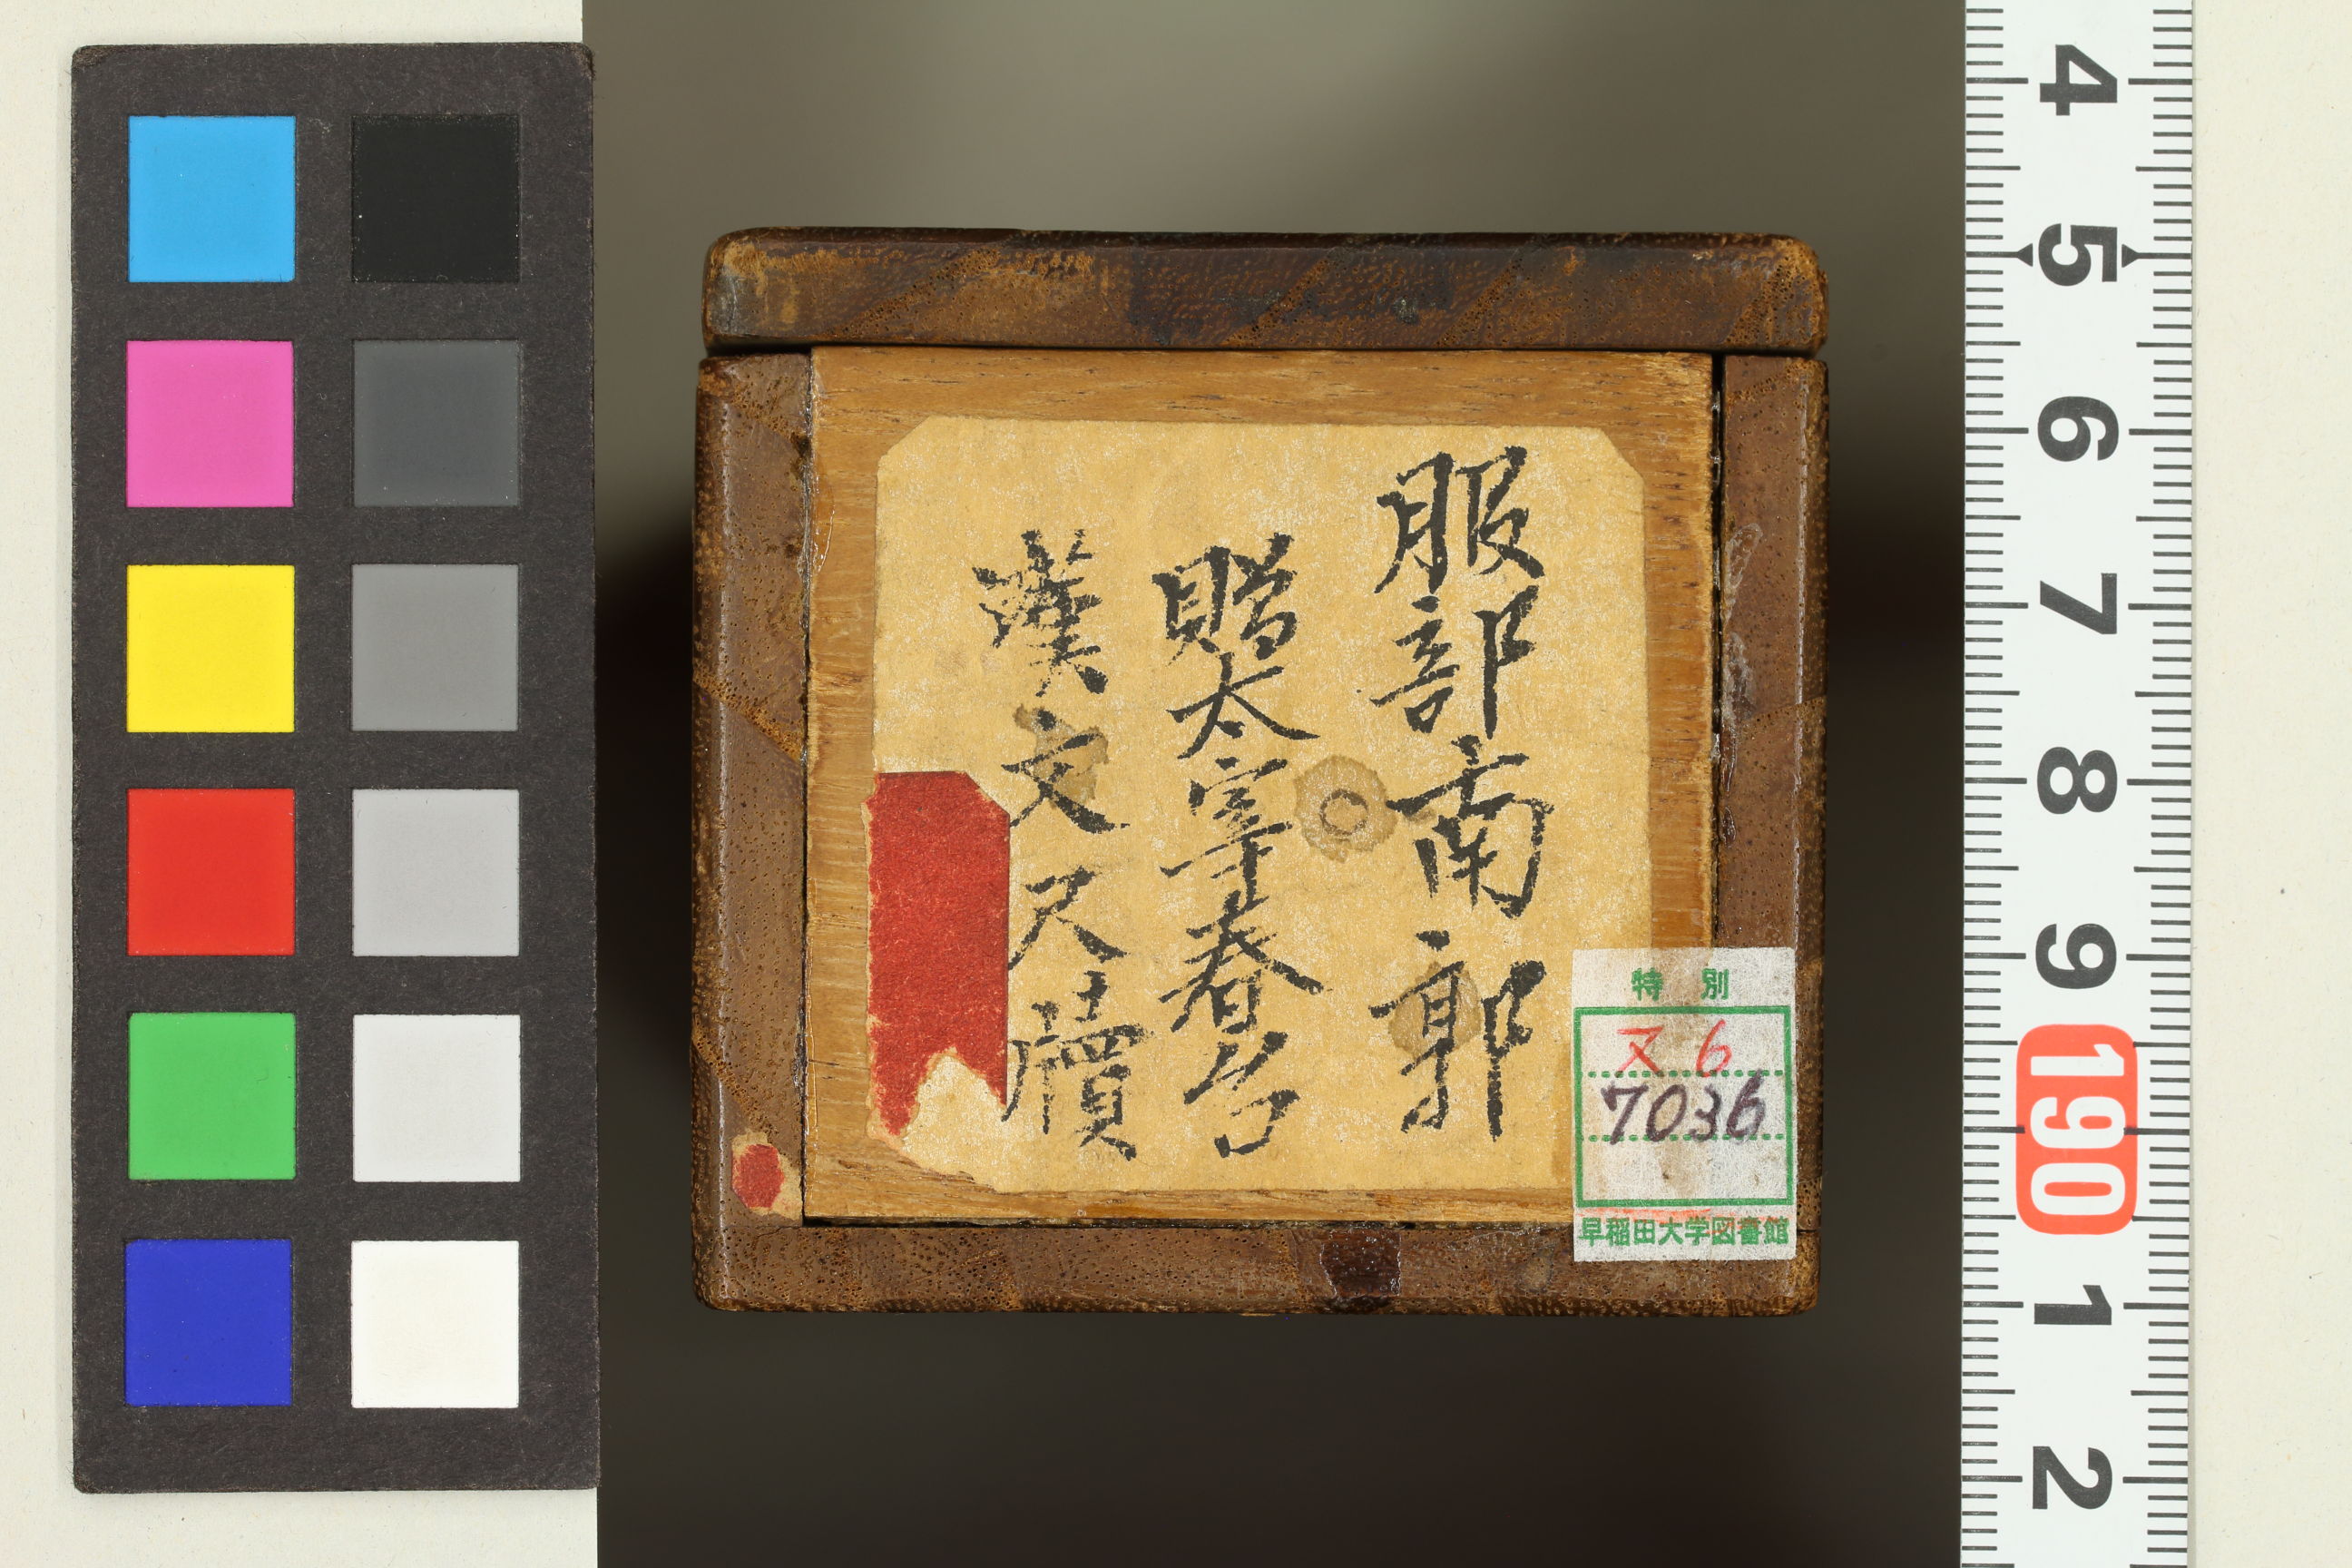 服部南郭
贈太宰春台
漢文尺牘
特別
ヌ6
7036
早稲田大学図書館
4
5
6
7
8
9
190
1
2